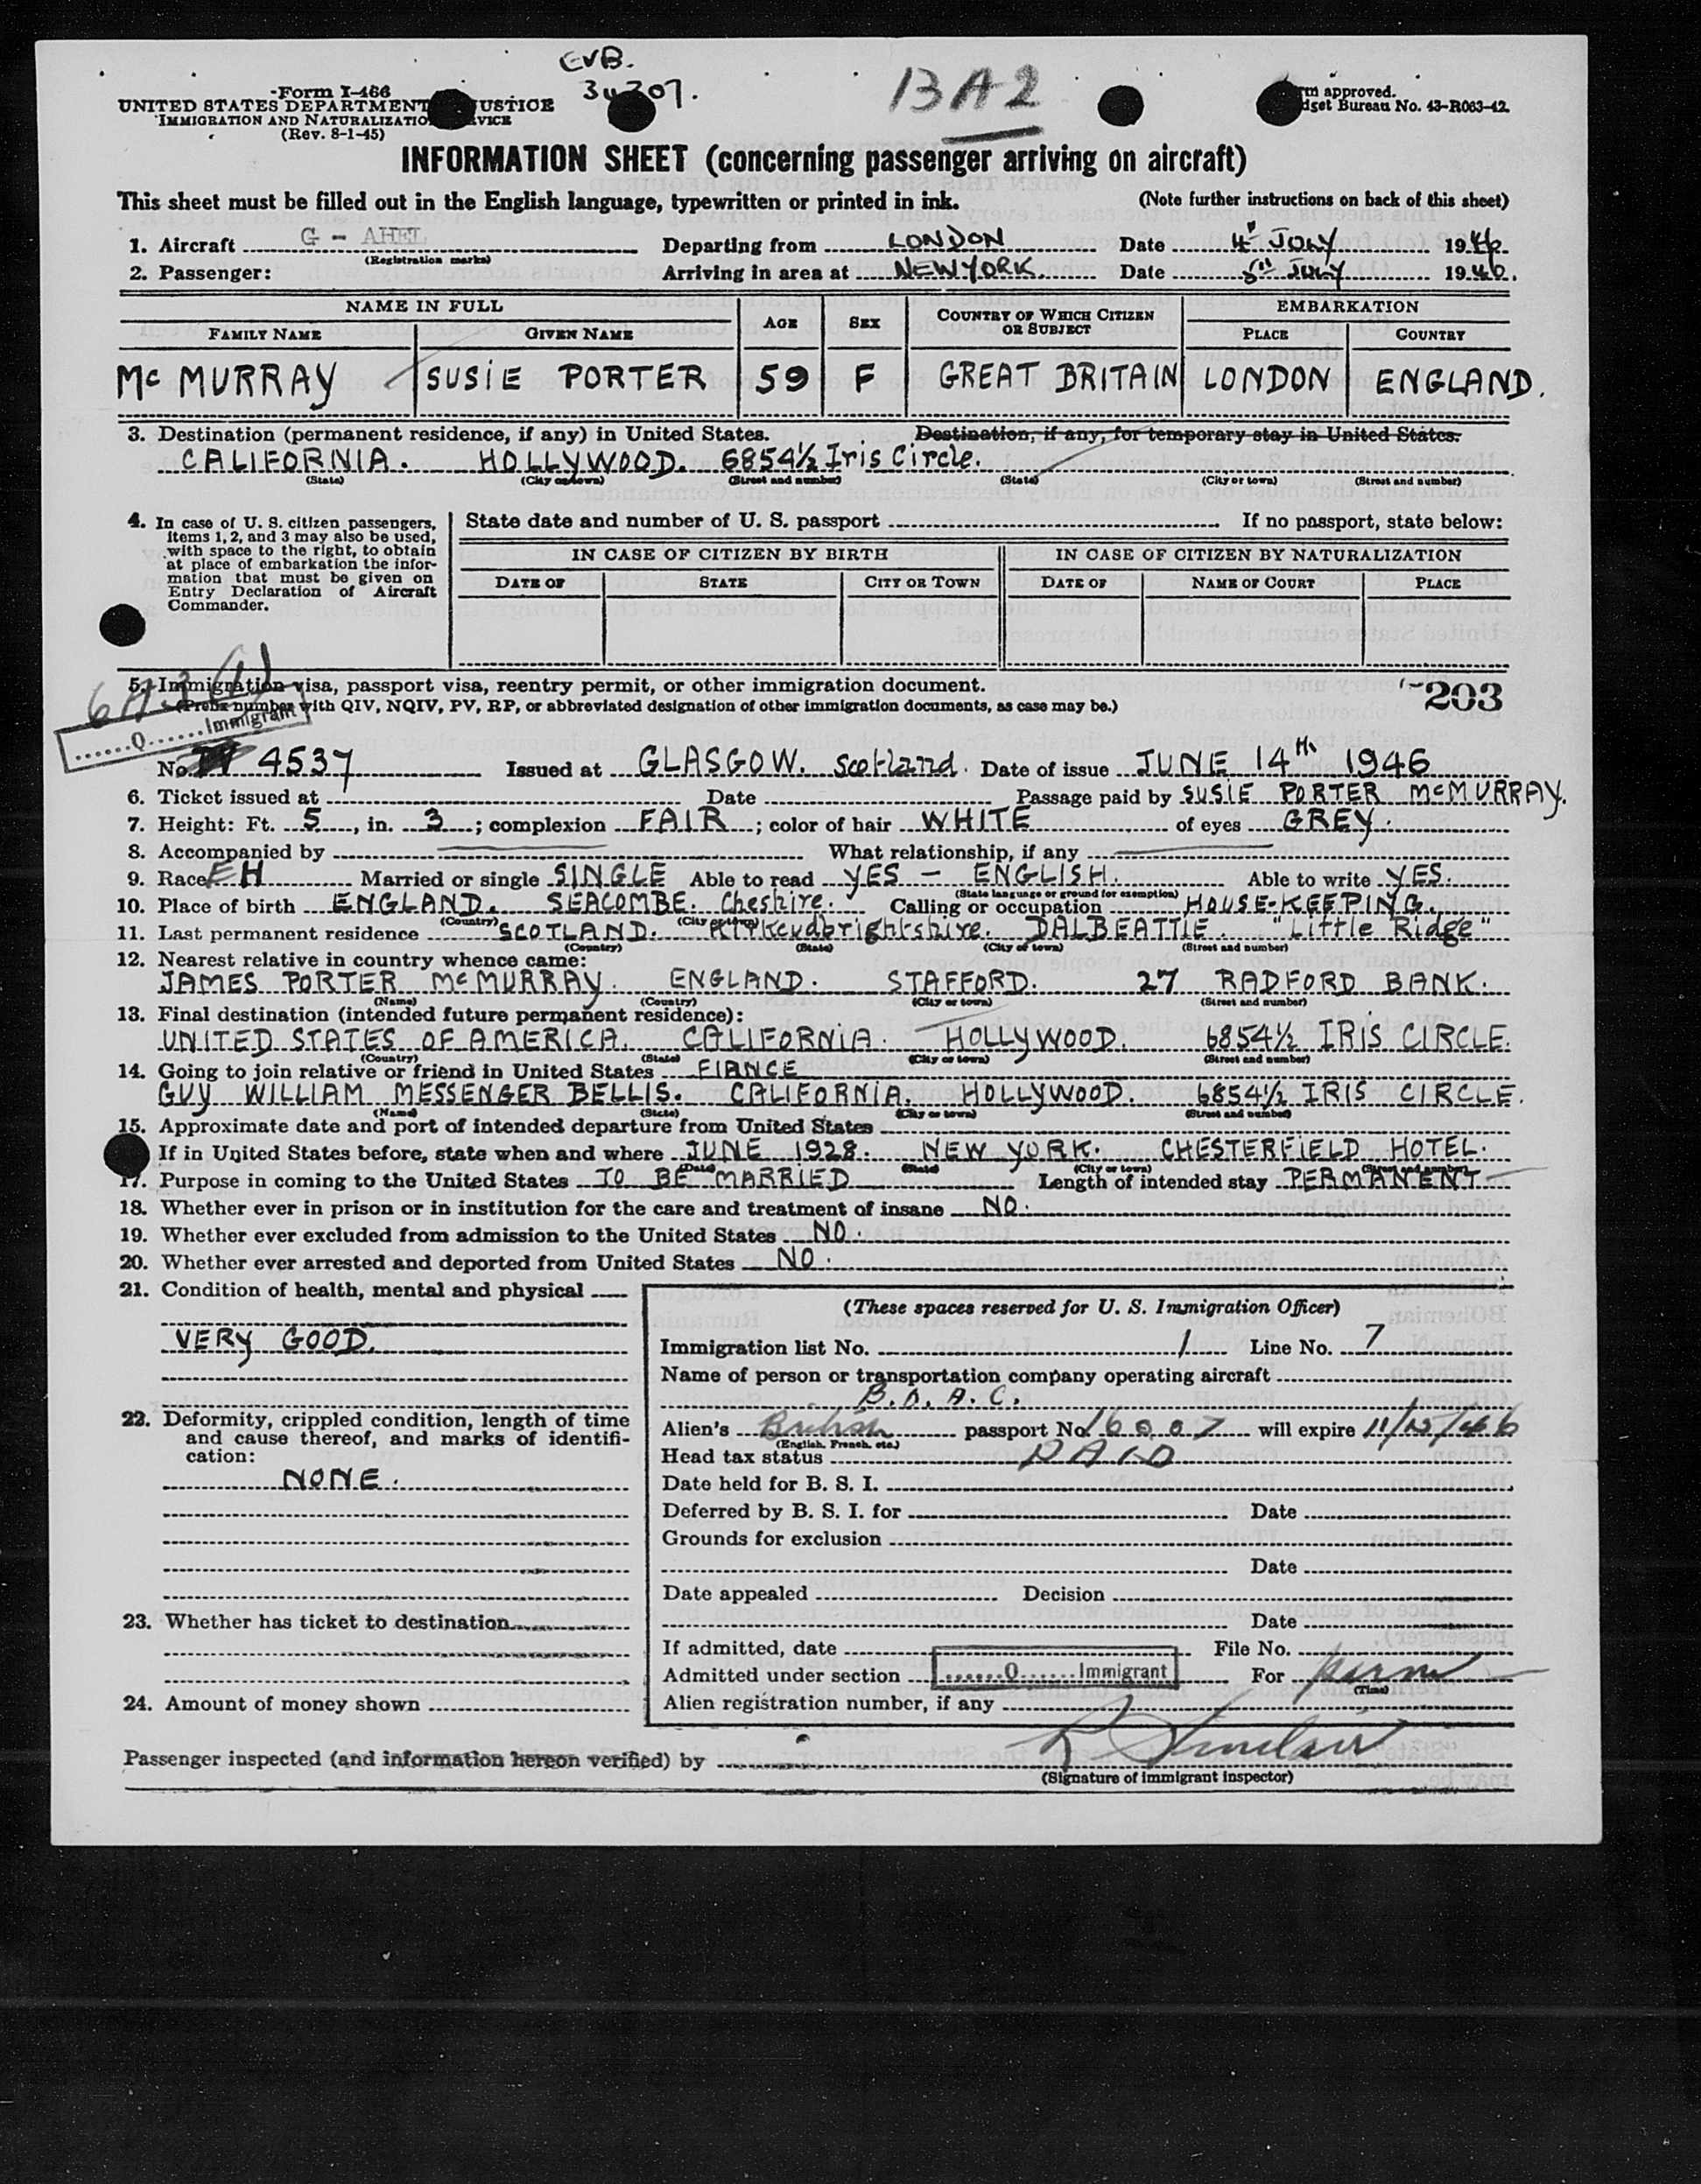 EVB.
Form I-466
UNITED STATES DEPARTMENT JUSTICE
IMMIGRATION AND NATURALIZATIO VICE
(Rev. 8-1-45)
13A2
rm approved.
dget Bureau No. 43-R063-42.
INFORMATION SHEET (concerning passenger arriving on aircraft)
This sheet must be filled out in the English language, typewritten or printed in ink. (Note further instructions on back of this sheet)
1. Aircraft G - AHEL Departing from LONDON Date 4th JULY 1946.
(Registration marks)
2. Passenger: Arriving in area at NEW YORK Date 5th JULY 1946.
NAME IN FULL AGE SEX COUNTRY OF WHICH CITIZEN OR SUBJECT EMBARKATION
FAMILY NAME GIVEN NAME PLACE COUNTRY
Mc MURRAY SUSIE PORTER 59 F GREAT BRITAIN LONDON ENGLAND.
3. Destination (permanent residence, if any) in United States. Destination, if any, for temporary stay in United States.
CALIFORNIA. HOLLYWOOD. 6854½ Iris Circle.
(State) (City or town) (Street and number) (State) (City or town) (Street and number)
4. In case of U. S. citizen passengers, items 1, 2, and 3 may also be used, with space to the right, to obtain at place of embarkation the information that must be given on Entry Declaration of Aircraft Commander.
State date and number of U. S. passport If no passport, state below:
IN CASE OF CITIZEN BY BIRTH IN CASE OF CITIZEN BY NATURALIZATION
DATE OF STATE CITY OR TOWN DATE OF NAME OF COURT PLACE
5. Immigration visa, passport visa, reentry permit, or other immigration document.
(Prefix number with QIV, NQIV, PV, RP, or abbreviated designation of other immigration documents, as case may be.)
203
Q Immigrant
No. 4537 Issued at GLASGOW. Scotland. Date of issue JUNE 14th 1946
6. Ticket issued at Date Passage paid by SUSIE PORTER McMURRAY.
7. Height: Ft. 5, in. 3; complexion FAIR; color of hair WHITE of eyes GREY.
8. Accompanied by What relationship, if any
9. Race EH Married or single SINGLE Able to read YES - ENGLISH. Able to write YES.
(State language or ground for exemption)
10. Place of birth ENGLAND. SEACOMBE. Cheshire. Calling or occupation HOUSE-KEEPING.
(Country) (City or town)
11. Last permanent residence SCOTLAND. Kirkcudbrightshire. DALBEATTIE. "Little Ridge"
(Country) (State) (City or town) (Street and number)
12. Nearest relative in country whence came:
JAMES PORTER McMURRAY. ENGLAND. STAFFORD. 27 RADFORD BANK.
(Name) (Country) (City or town) (Street and number)
13. Final destination (intended future permanent residence):
UNITED STATES OF AMERICA. CALIFORNIA. HOLLYWOOD. 6854½ IRIS CIRCLE.
(Country) (State) (City or town) (Street and number)
14. Going to join relative or friend in United States FIANCE
GUY WILLIAM MESSENGER BELLIS. CALIFORNIA. HOLLYWOOD. 6854½ IRIS CIRCLE.
(Name) (State) (City or town) (Street and number)
15. Approximate date and port of intended departure from United States
If in United States before, state when and where JUNE 1928. NEW YORK. CHESTERFIELD HOTEL.
(Date) (State) (City or town) (Street and number)
17. Purpose in coming to the United States TO BE MARRIED Length of intended stay PERMANENT
18. Whether ever in prison or in institution for the care and treatment of insane NO.
19. Whether ever excluded from admission to the United States NO.
20. Whether ever arrested and deported from United States NO.
21. Condition of health, mental and physical
VERY GOOD.
22. Deformity, crippled condition, length of time and cause thereof, and marks of identification:
NONE.
23. Whether has ticket to destination
24. Amount of money shown
(These spaces reserved for U. S. Immigration Officer)
Immigration list No. 1 Line No. 7
Name of person or transportation company operating aircraft
B.O.A.C.
Alien's British passport No. 16007 will expire 11/15/46
(English, French, etc.)
Head tax status PAID
Date held for B. S. I.
Deferred by B. S. I. for Date
Grounds for exclusion
Date
Date appealed Decision
Date
If admitted, date File No.
Admitted under section Q Immigrant For perm
(Time)
Alien registration number, if any
Passenger inspected (and information hereon verified) by
(Signature of immigrant inspector)